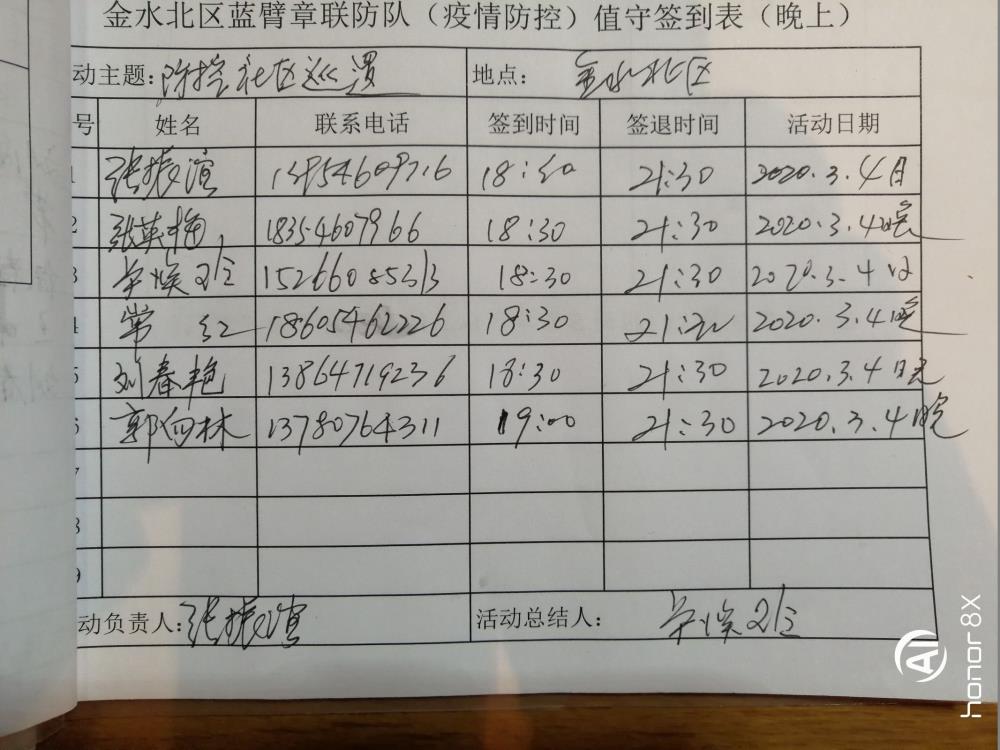 金水北区蓝臂章联防队（疫情防控）值守签到表（晚上）
动主题：防控社区巡逻 地点： 金水北区
号 姓名 联系电话 签到时间 签退时间 活动日期
1 张振渲 18:30 21:30 2020.3.4日
2 张英梅 18354607966 18:30 21:30 2020.3.4晚
3 15266085313 18:30 21:30 2020.3.4日
4 常红 18605462226 18:30 21:30 2020.3.4晚
5 刘春艳 13864719236 18:30 21:30 2020.3.4晚
6 郭向林 13780764311 19:00 21:30 2020.3.4晚
7
8
9
动负责人：张振渲 活动总结人：
AI honor 8X